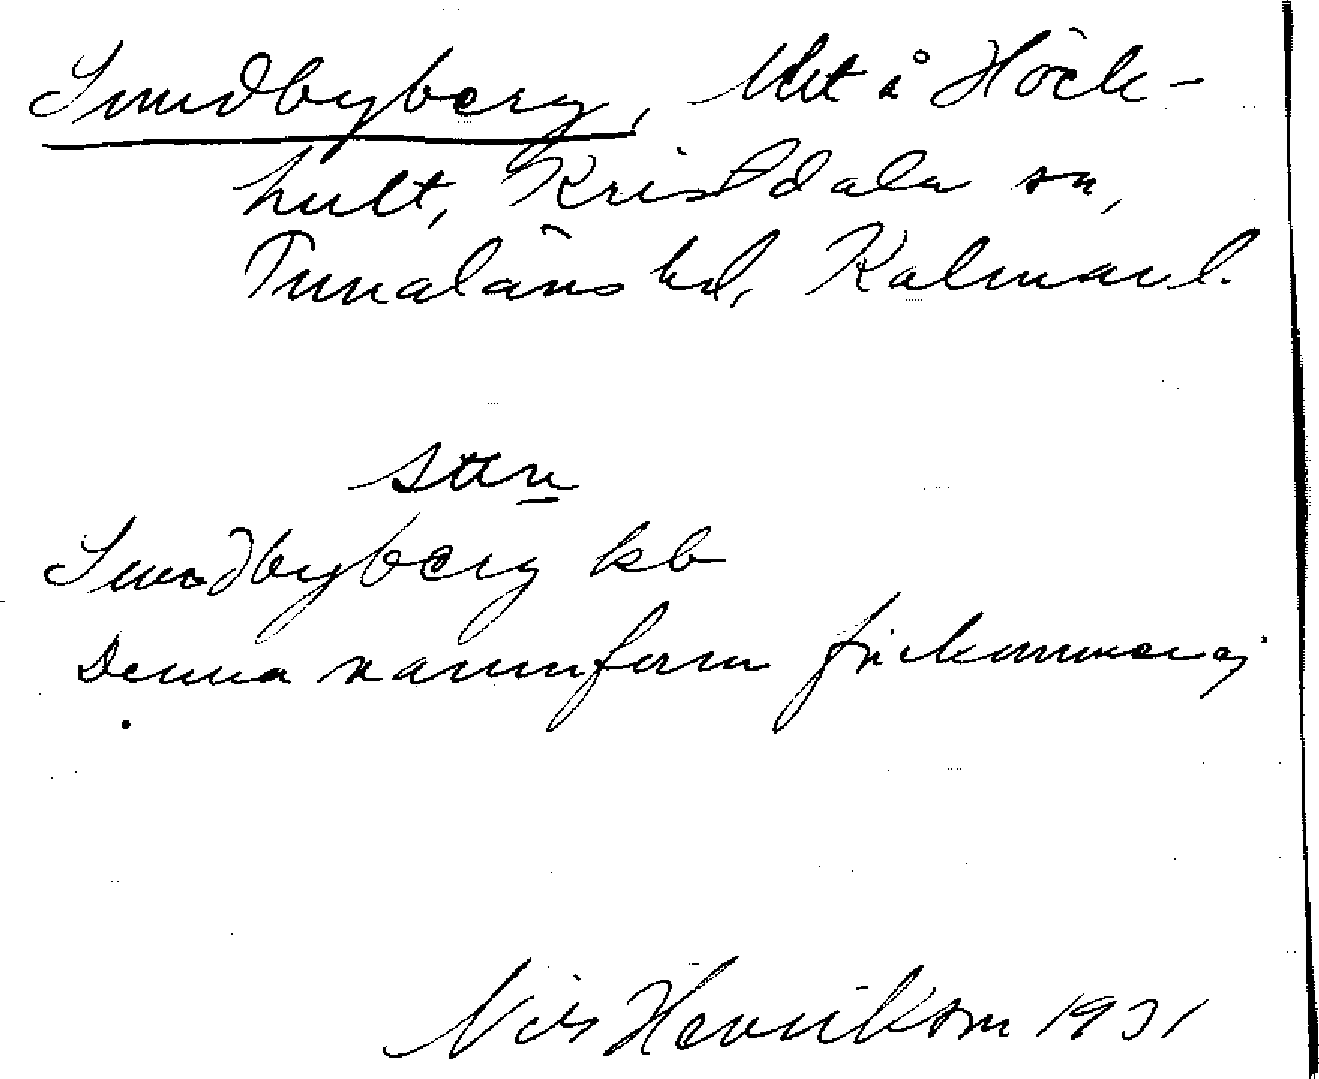 Sundbyberg, lht å Höck-
hult, Kristdala sn,
Tunaläns hd, Kalmar l.
Sundbyberg kb
Denna namnform förekommer ej
Nils Henrikson 1931